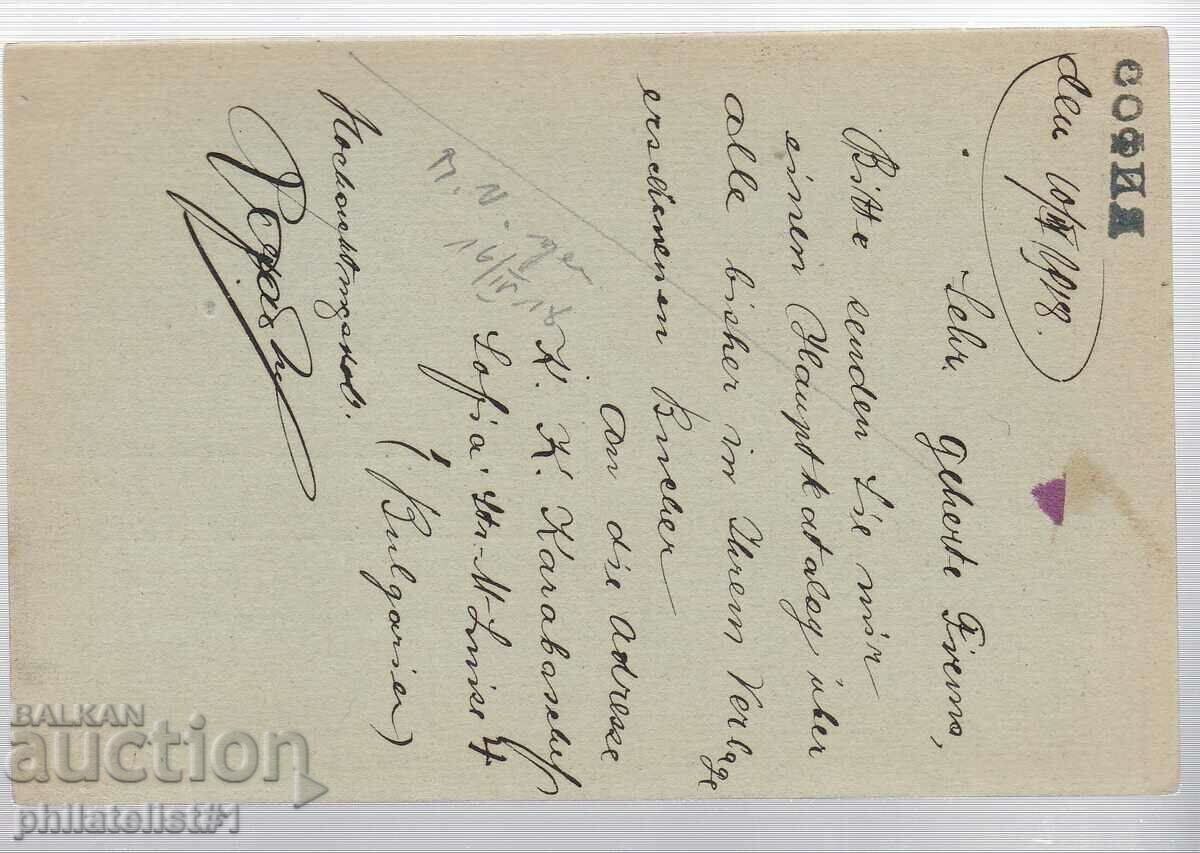 СОФИЯ
den 10/IV 1918.
Sehr. geherte Firma,
Bitte senden Sie mir
einen Hauptkatalog über
alle bisher in Ihrem Verlage
erschienenen Bucher
an die Adresse
K. K. Karabascheff
Sofia. Str. M-Luise 4
(Bulgarien)
Hochachtungsvoll.
BALKAN
auction
philatelist#1